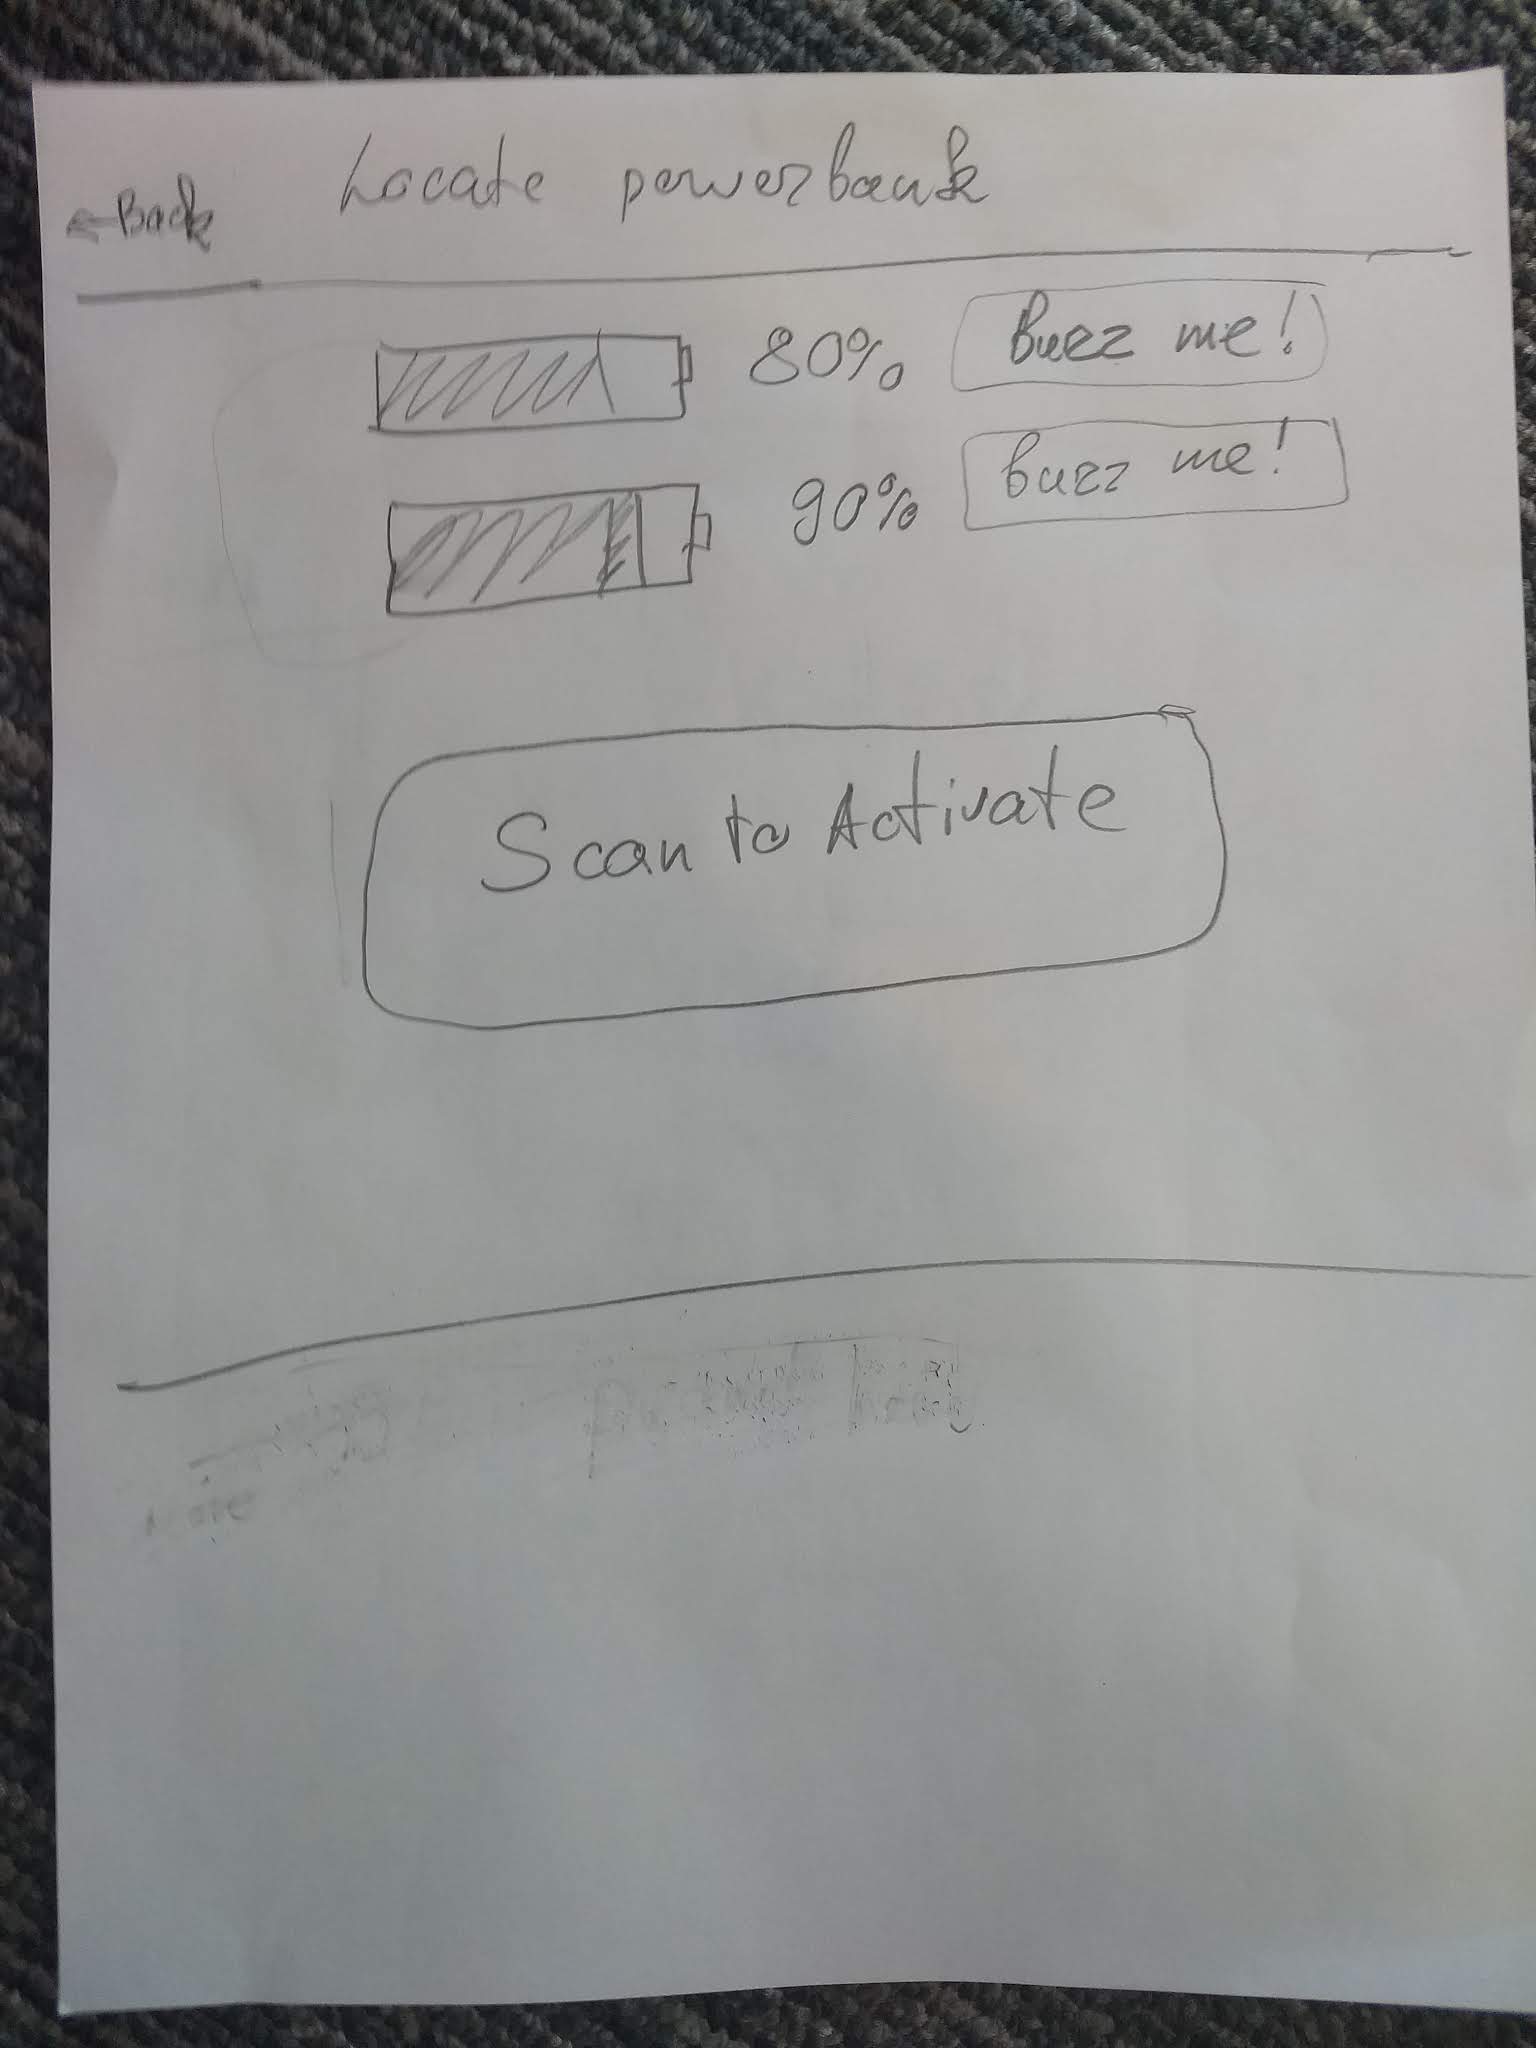 ←Back Locate powerbank
80% Buzz me!
90% buzz me!
Scan to Activate